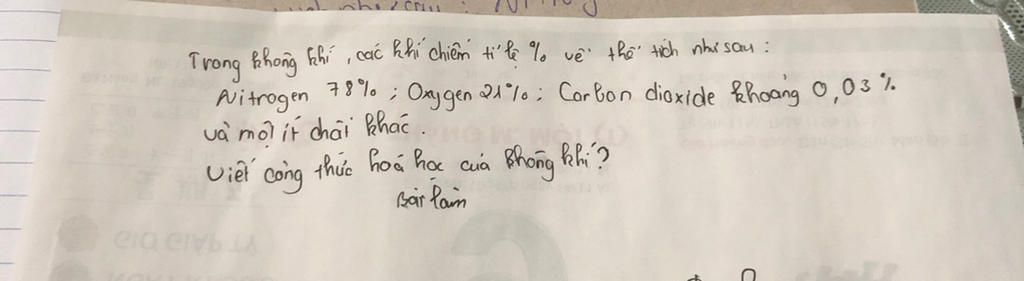 Trong không khí, các khí chiếm tỉ lệ % về thể tích như sau:
Nitrogen 78%; Oxygen 21%; Carbon dioxide khoảng 0,03%
và một ít chất khác.
Viết công thức hoá học của không khí?
Bài làm